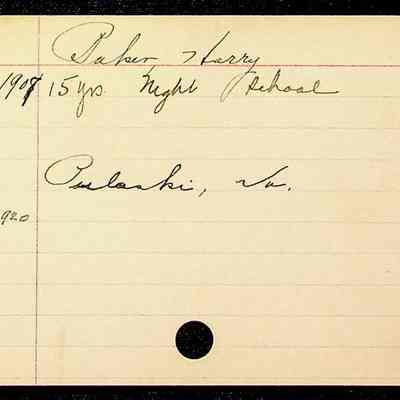 Baker, Harry
1907 15 yrs. Night School
Pulaski, Va.
1920